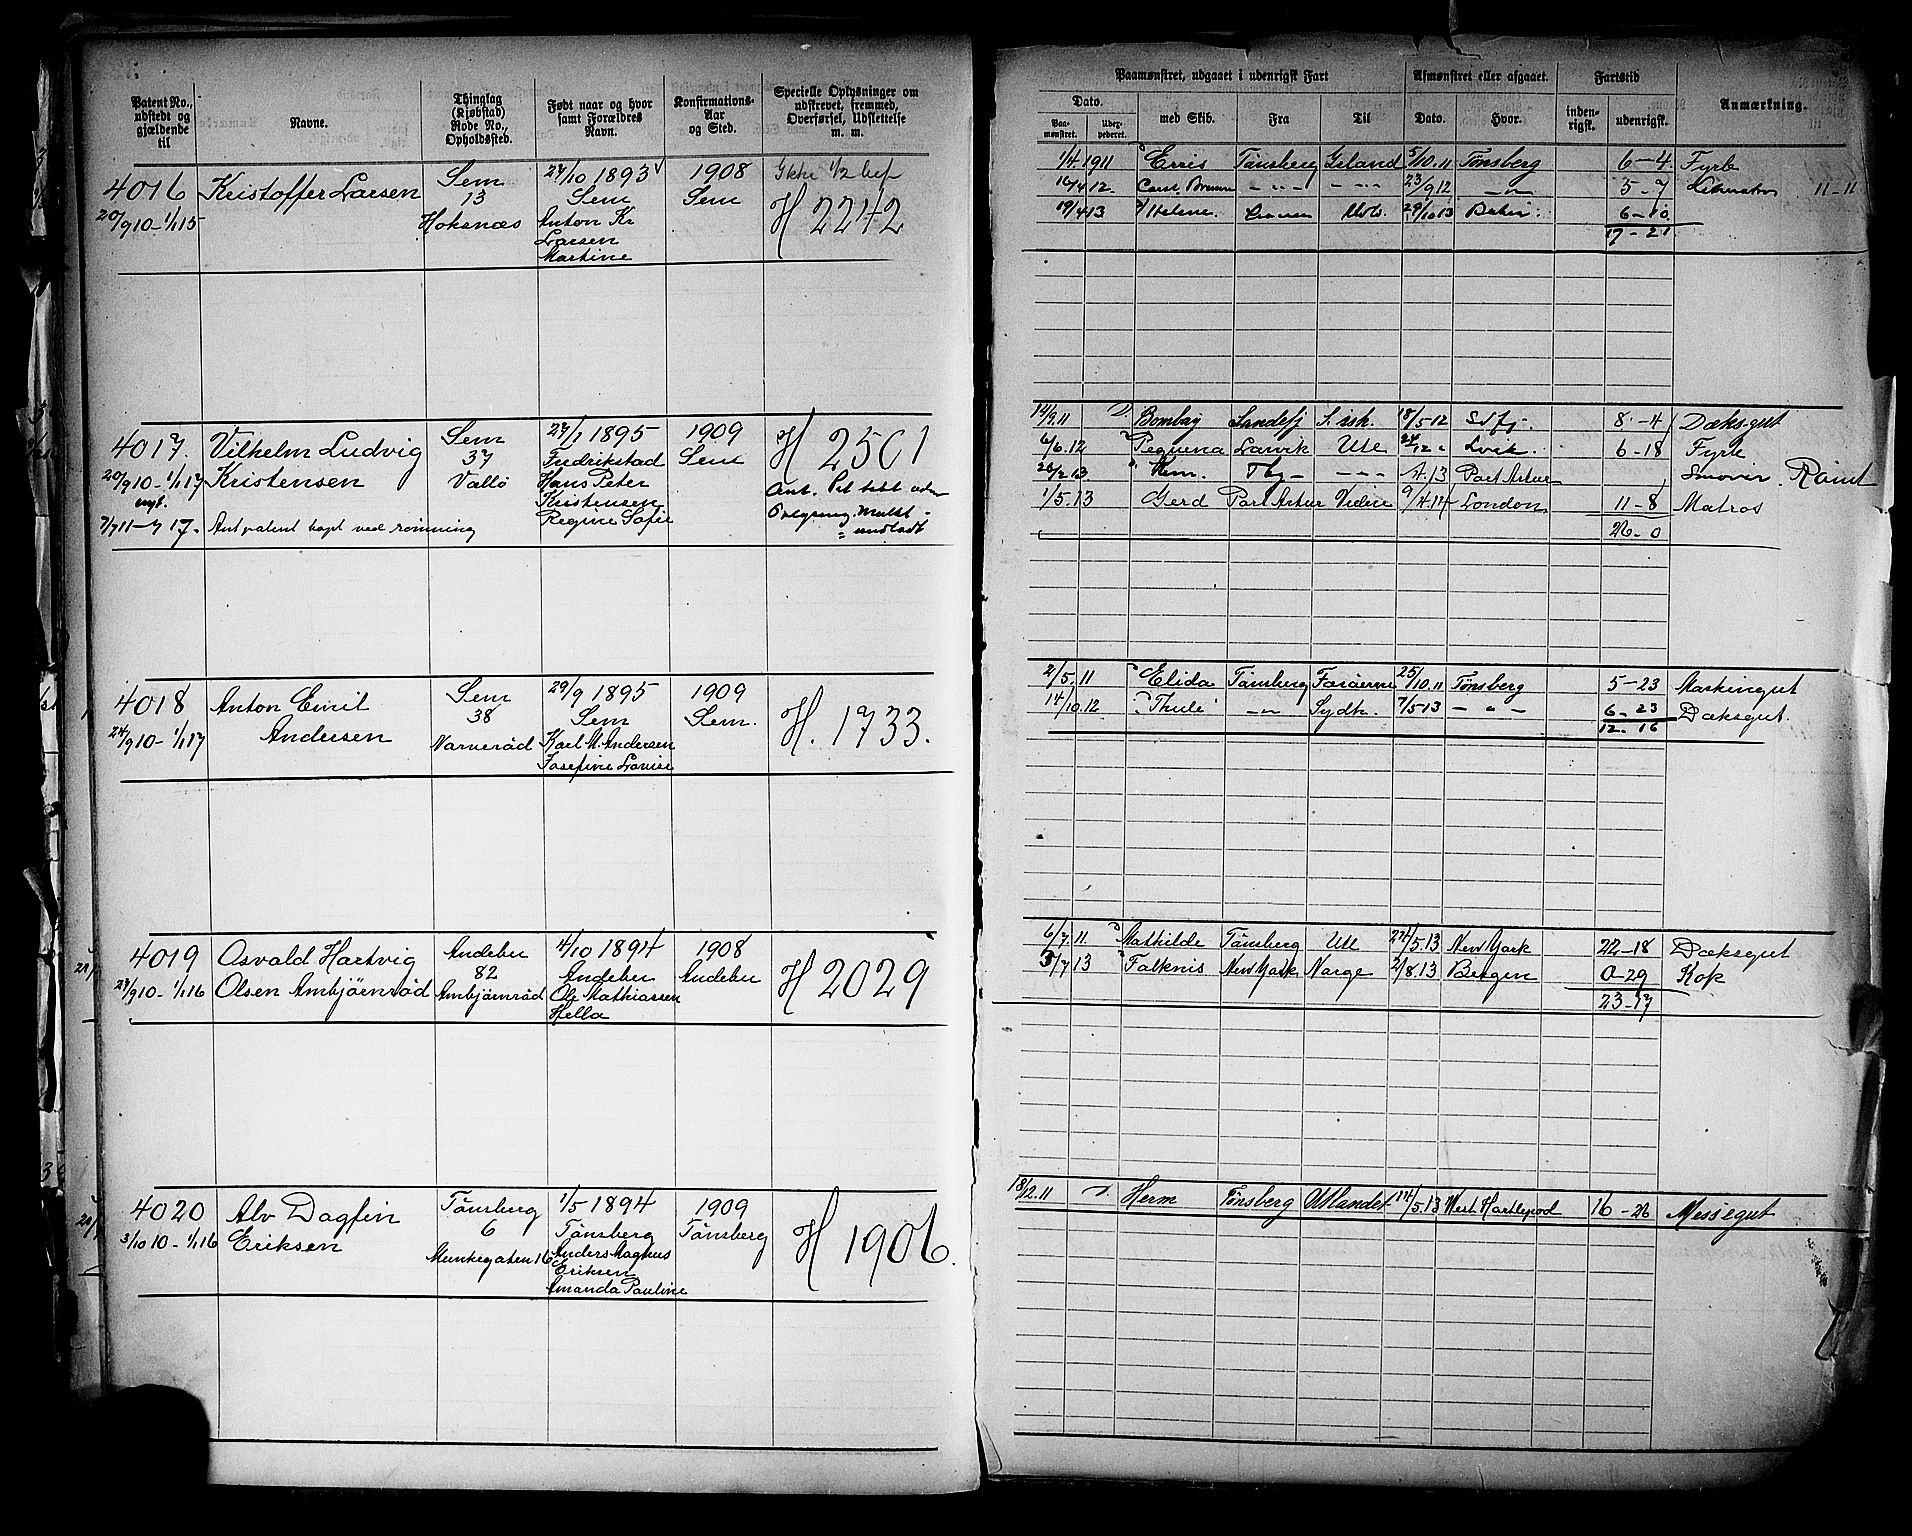 Patent No., udstedt og gjældende til
Navne.
Thinglag (Kjøbstad) Rode No., Opholdssted.
Født naar og hvor samt Forældres Navn.
Konfirmations-Aar og Sted.
Specielle Oplysninger om udskrevet, fremmed, Overførsel, Udslettelse m. m.
Paamønstret, udgaaet i udenrigsk Fart
Afmønstret eller afgaaet.
Fartstid
Anmærkning.
Dato.
Paa-mønstret.
med Skib.
Fra
Til
Dato.
Hvor.
inden-rigsk.
udenrigsk.
4016
20/9 10 – 1/1 15
Kristoffer Larsen
Sem
13
Hoksnæs
27/10 1893
Sem
Anton Kr
Larsen
Martine
1908
Sem
Ikke 1/2 bef
H 2242
1/4 1911 Erris Tønsberg Island 5/10 11 Tønsberg 6–4 Fyrb
16/4 12 – " – – " – 23/9 12 – " – 5–7 11–11
19/4 13 Helene 29/10 13 6–10
17–21
4017.
20/9 10 – 1/1 17
nyt.
7/7 11 – 17.
Vilhelm Ludvig
Kristensen
Ant patent tapt ved rømning
Sem
37
Vallø
27/1 1895
Fredrikstad
Hans Peter
Kristensen
Regine Sofie
1909
Sem
H 2501
14/9 11 D. Bombay Sandefj 18/5 12 Sdfj. 8–4 Dæksgut
6/6 12 Pequena Larvik Ute Lvik. 6–18 Fyrb
4.13 Port Artur Rømt
1/5 13 Gerd Port Artur 9/4 14 London 11–8 Matros
26–0
4018
24/9 10 – 1/1 17
Anton Emil
Andersen
Sem
38
Narverød
29/9 1895
Sem
Karl M. Andersen
Josefine Lovise
1909
Sem.
H. 1733.
2/5 11 Elida Tønsberg Færøerne 25/10 11 Tønsberg 5–23 Maskingut
14/10 12 Thule – " – Sydh. 7/5 13 – " – 6–23 Dæksgut
12–16
4019
27/9 10 – 1/1 16
Osvald Hartvig
Olsen Ambjörnröd
Andebu
82
Ambjörnröd
4/10 1894
Andebu
Ole Mathiassen
Hella
1908
Andebu
H 2029
6/7 11 Mathilde Tønsberg Ute 27/5 13 New York 22–18 Dæksgut
3/7 13 Falknis New York Norge 2/8 13 Bergen 0–29 Kok
23–17
4020
3/10 10 – 1/1 16
Alv Dagfin
Eriksen
Tønsberg
6
Munkegaten 16
1/5 1894
Tønsberg
Anders Magnus
Eriksen
Amanda Pauline
1909
Tønsberg
H 1906.
18/12 11 D. Herm Tønsberg Utlandet 14/5 13 West Hartlepool 16–26 Messegut